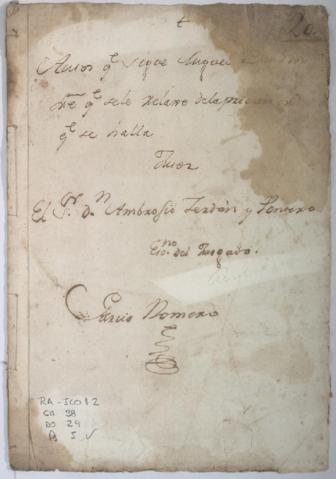 20
Autos qe sigue Miguel
sre qe sele relaxe dela prision en
qe se halla
Juez
El Sr. Dn Ambrosio Zerdan y Pontero
Esno. del Juzgado.
Garcia Romero
RA-ICO12
CA 38
DO 29